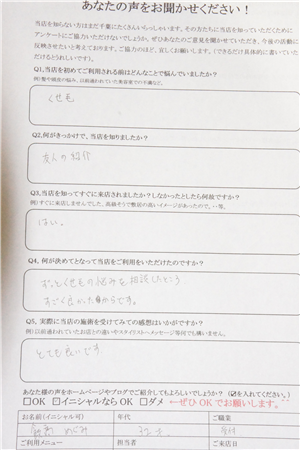 あなたの声をお聞かせください!
当店を知らない方はまだ千葉にたくさんいらっしゃいます。その方たちに当店を知っていただくために
アンケートにご協力いただけないでしょうか。ぜひあなたのご意見を聞かせていただき、今後の活動に
反映させたいと考えております。ご協力のほど、宜しくお願いします。(できるだけ具体的に書いていた
だけるとうれしいです)。
Q1,当店を初めてご利用される前はどんなことで悩んでいましたか?
くせ毛
Q2,何がきっかけで、当店を知りましたか?
友人の紹介
Q3,当店を知ってすぐに来店されましたか?しなかったとしたら何故ですか?
例)すぐに来店しませんでした、高級そうで敷居の高いイメージがあったので。・・等。
はい。
Q4,何が決めてとなって当店をご利用をいただけたのですか?
ずっとくせ毛の悩みを相談したところ
すごく良かったからです。
Q5,実際に当店の施術を受けてみての感想はいかがですか?
とても良いです
あなた様の声をホームページやブログでご紹介してもよろしいでしょうか?(☑を入れてください。)
□OK □イニシャルならOK □ダメ ←ぜひOKでお願いします。
お名前(イニシャル可) 年代 ご職業
めぐみ
ご利用メニュー 担当者 ご来店日